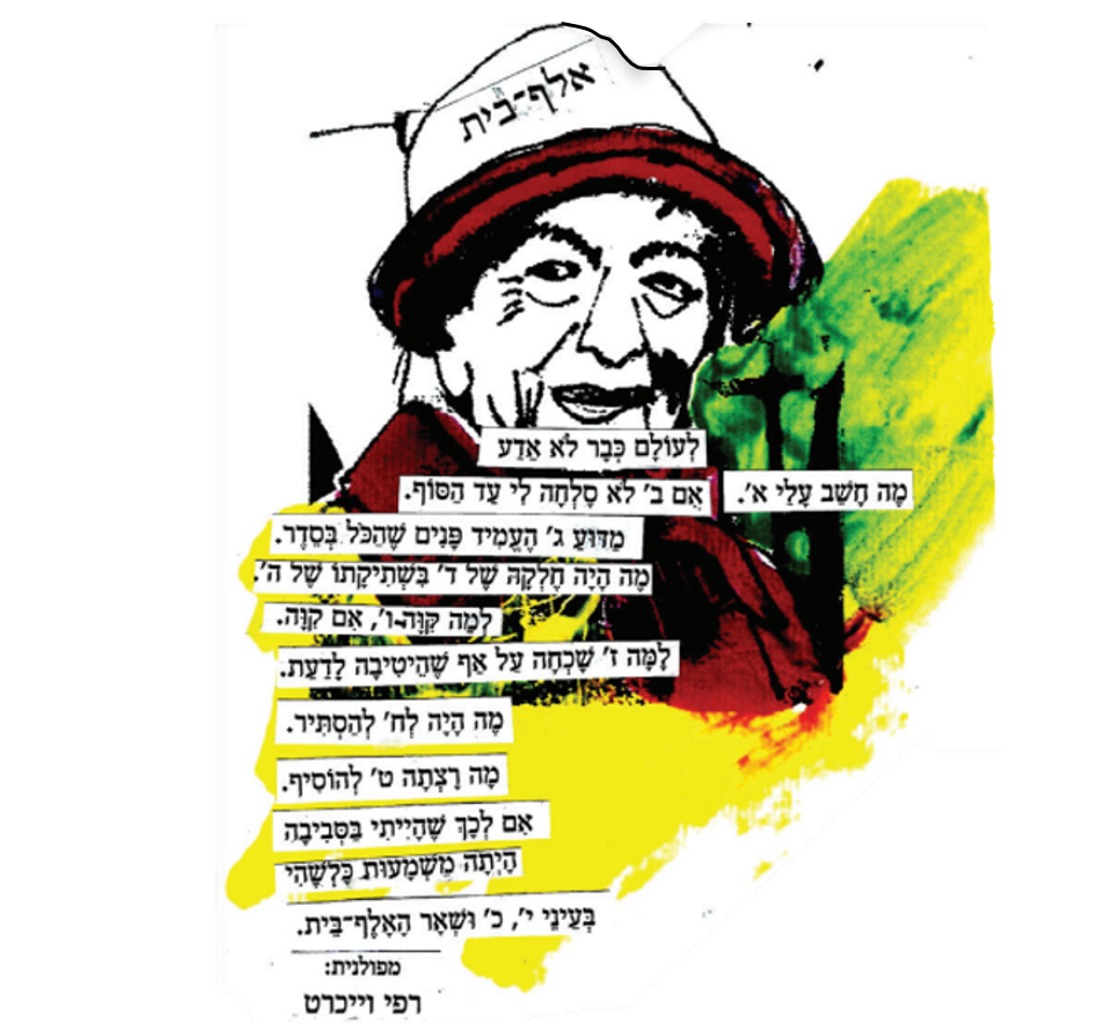 אלף־בית
לְעוֹלָם כְּבָר לֹא אֵדַע
מַה חָשַׁב עָלַי א'.
אִם ב' לֹא סָלְחָה לִי עַד הַסּוֹף.
מַדּוּעַ ג' הֶעֱמִיד פָּנִים שֶׁהַכֹּל בְּסֵדֶר.
מֶה הָיָה חֶלְקָהּ שֶׁל ד' בִּשְׁתִיקָתוֹ שֶׁל ה'.
לְמַה קִוָּה ו', אִם קִוָּה.
לָמָּה ז' שָׁכְחָה עַל אַף שֶׁהֵיטִיבָה לָדַעַת.
מֶה הָיָה לְח' לְהַסְתִּיר.
מָה רָצְתָה ט' לְהוֹסִיף.
אִם לְכָךְ שֶׁהָיִיתִי בַּסְּבִיבָה
הָיְתָה מַשְׁמָעוּת כָּלְשֶׁהִי
בְּעֵינֵי י', כ' וּשְׁאָר הָאָלֶף־בֵּית.
מפולנית:
רפי וייכרט